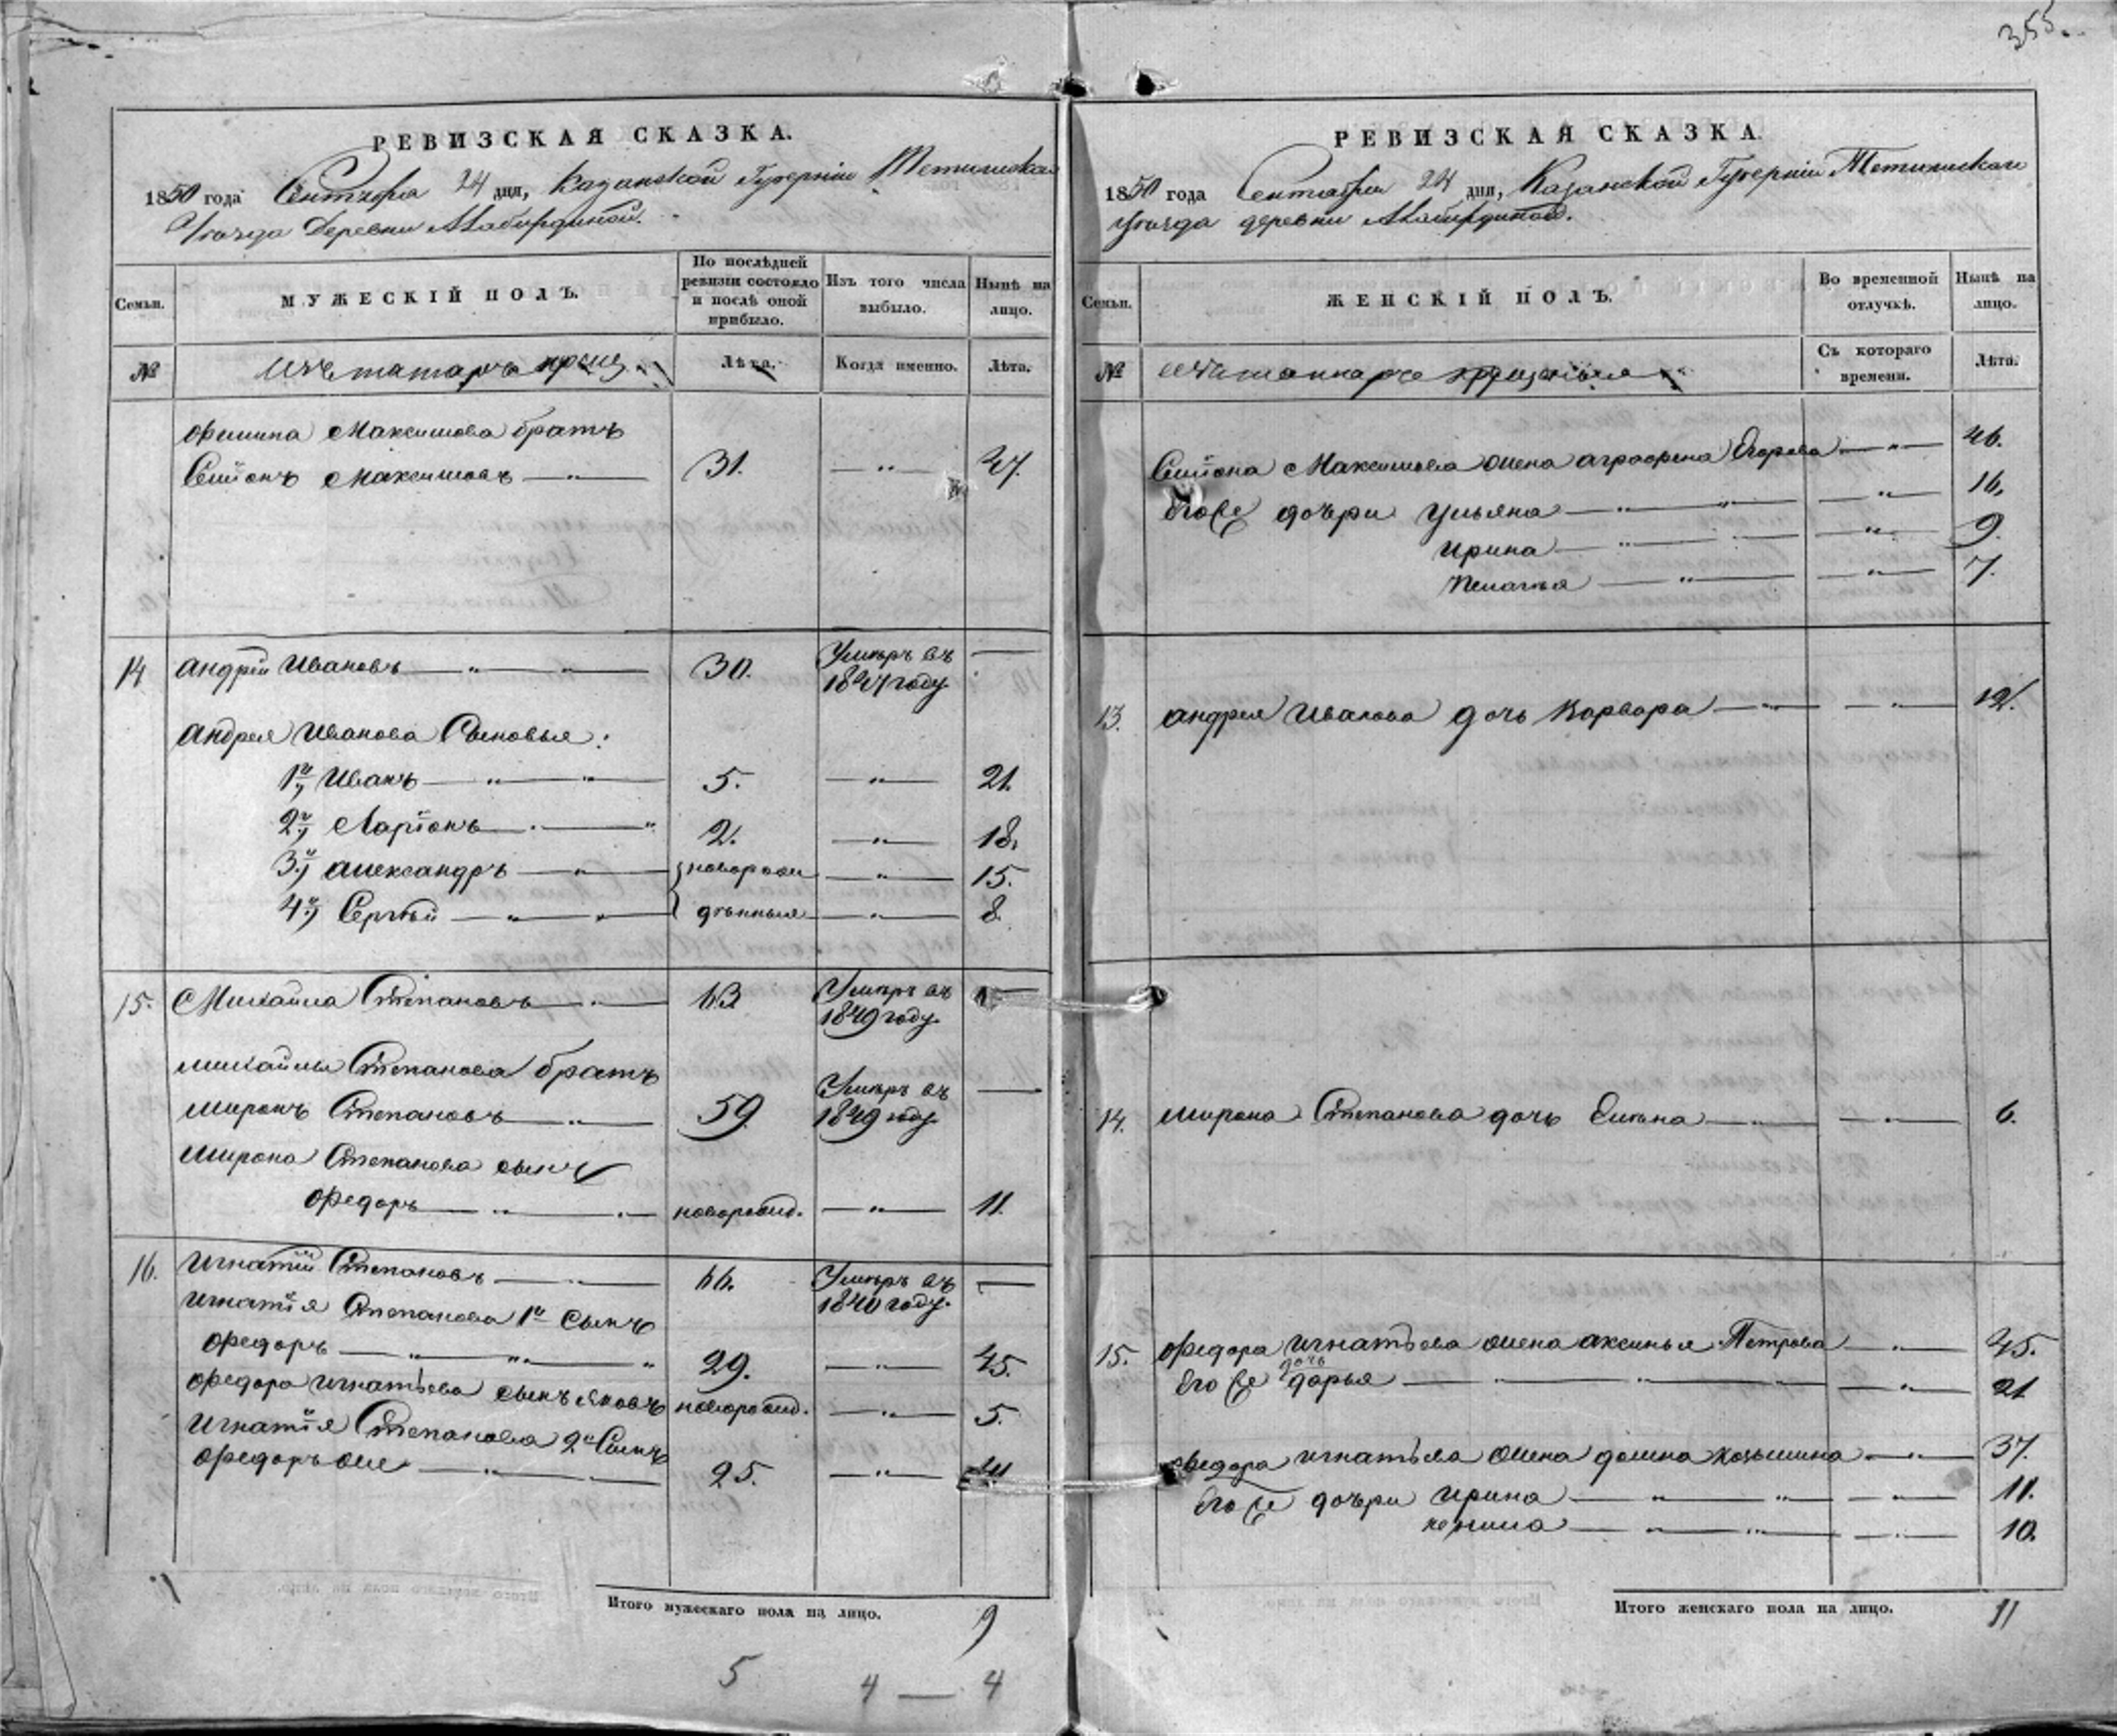 355.
РЕВИЗСКАЯ СКАЗКА.
1850 года Сентября 24 дня, Казанской Губерніи Тетюшскаго
Уѣзда Деревни
Семьи.
МУЖЕСКІЙ ПОЛЪ.
По послѣдней ревизіи состояло и послѣ оной прибыло.
Изъ того числа выбыло.
Нынѣ на лицо.
№
Изъ татаръ крещ
Лѣта.
Когда именно.
Лѣта.
Максимова братъ
Симіонъ Максимовъ — " — 31. — " — 47.
14 Андрей Ивановъ — " — " — 30. Умеръ въ 1847 году. —
Андрея Иванова Сыновья:
1й Иванъ — " — " — 5. — " — 21.
2й Ларіонъ — " — " 2. — " — 18.
3й Александръ — " — новорож — " — 15.
4й Сергѣй — " — " — денные — " — 8.
15. Михайла Степановъ — " — 63 Умеръ въ 1849 году. —
Михайлы Степанова братъ
Миронъ Степановъ — " — 59. Умеръ въ 1849 году. —
Мирона Степанова сынъ
Федоръ — " — " — новорожд. — " — 11.
16. Игнатій Степановъ — " — 66. Умеръ въ 1840 году. —
Игнатія Степанова 1й сынъ
Федоръ — " — " — " 29. — " — 45.
Федора Игнатьева сынъ Яковъ новорожд. — " — 5.
Игнатія Степанова 2й Сынъ
Федоръ же — " — " — 25. — " — 41
Итого мужескаго пола на лицо. 9
5 4 — 4
РЕВИЗСКАЯ СКАЗКА.
1850 года Сентября 24 дня, Казанской Губерніи Тетюшскаго
Уѣзда деревни
Семьи.
ЖЕНСКІЙ ПОЛЪ.
Во временной отлучкѣ.
Нынѣ на лицо.
№
Съ котораго времени.
Лѣта.
Симіона Максимова жена Аграфена Егорова — " — 46.
Его же дочери Ульяна — " — " — " — 16.
Ирина — " — " — 9.
Пелагья — " — " — 7.
13. Андрея Иванова дочь Варвара — " — " — 12.
14. Мирона Степанова дочь Елена — " — " — 6.
15. Федора Игнатьева жена Аксинья Петрова — " — 45.
Его же дочь Дарья — " — " — " — 21
Федора Игнатьева жена Домна Козьмина — " — 37.
Его же дочери Ирина — " — " — " — 11.
— " — " — " — 10.
Итого женскаго пола на лицо. 11